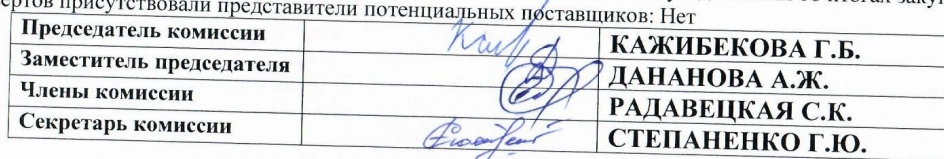 ертов присутствовали представители потенциальных поставщиков: Нет
Председатель комиссии КАЖИБЕКОВА Г.Б.
Заместитель председателя ДАНАНОВА А.Ж.
Члены комиссии РАДАВЕЦКАЯ С.К.
Секретарь комиссии СТЕПАНЕНКО Г.Ю.